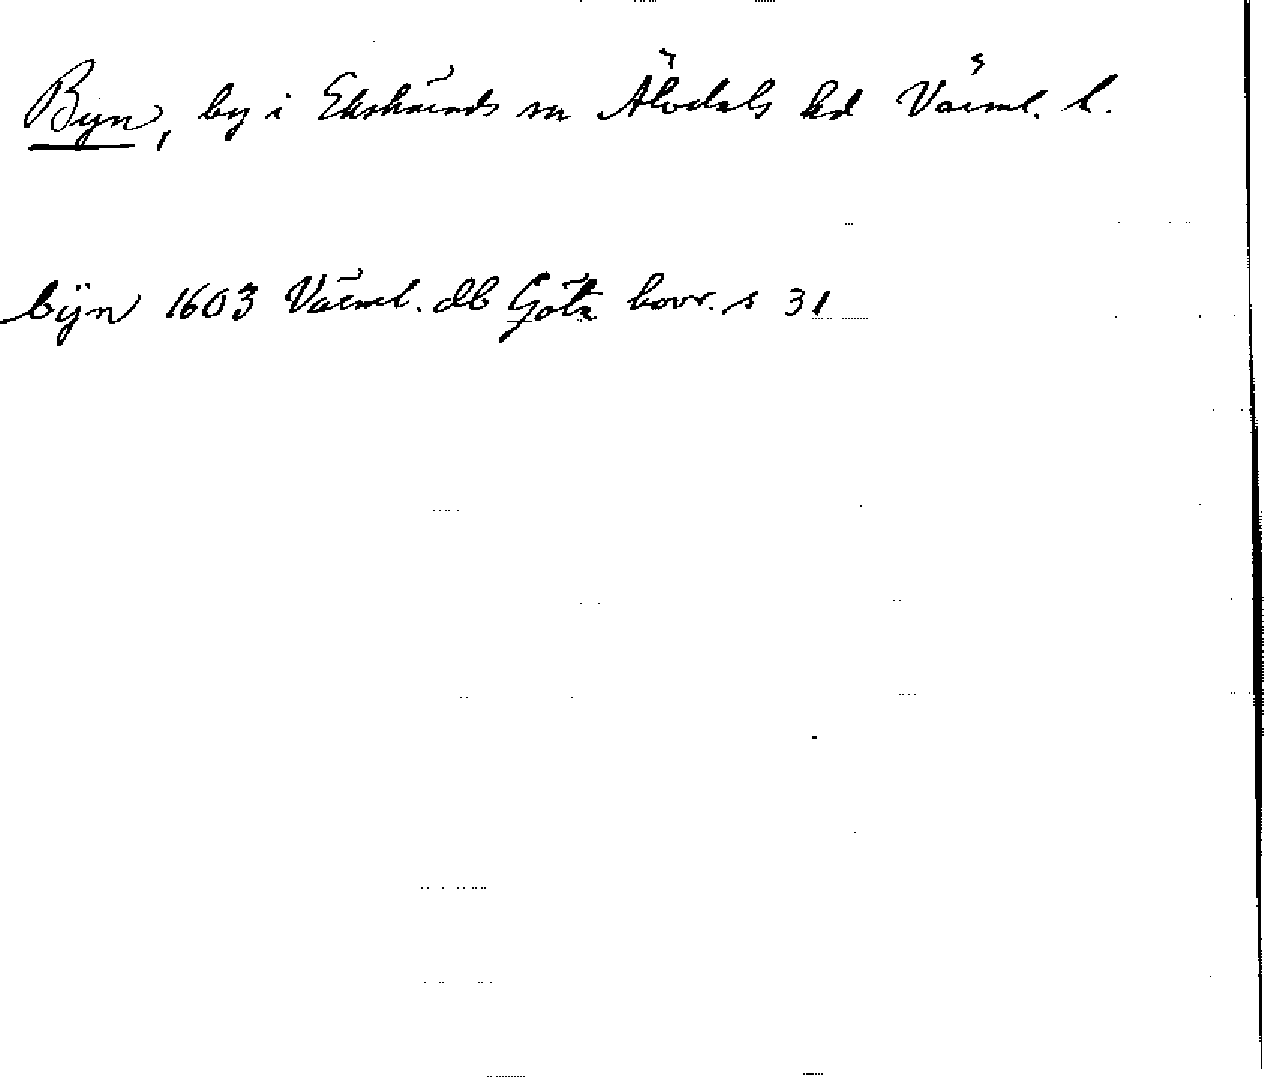 Byn, by i Ekshärads sn Älvdals hd Värml. l.
bÿn 1603 Värml. db Göta hovr. s 31